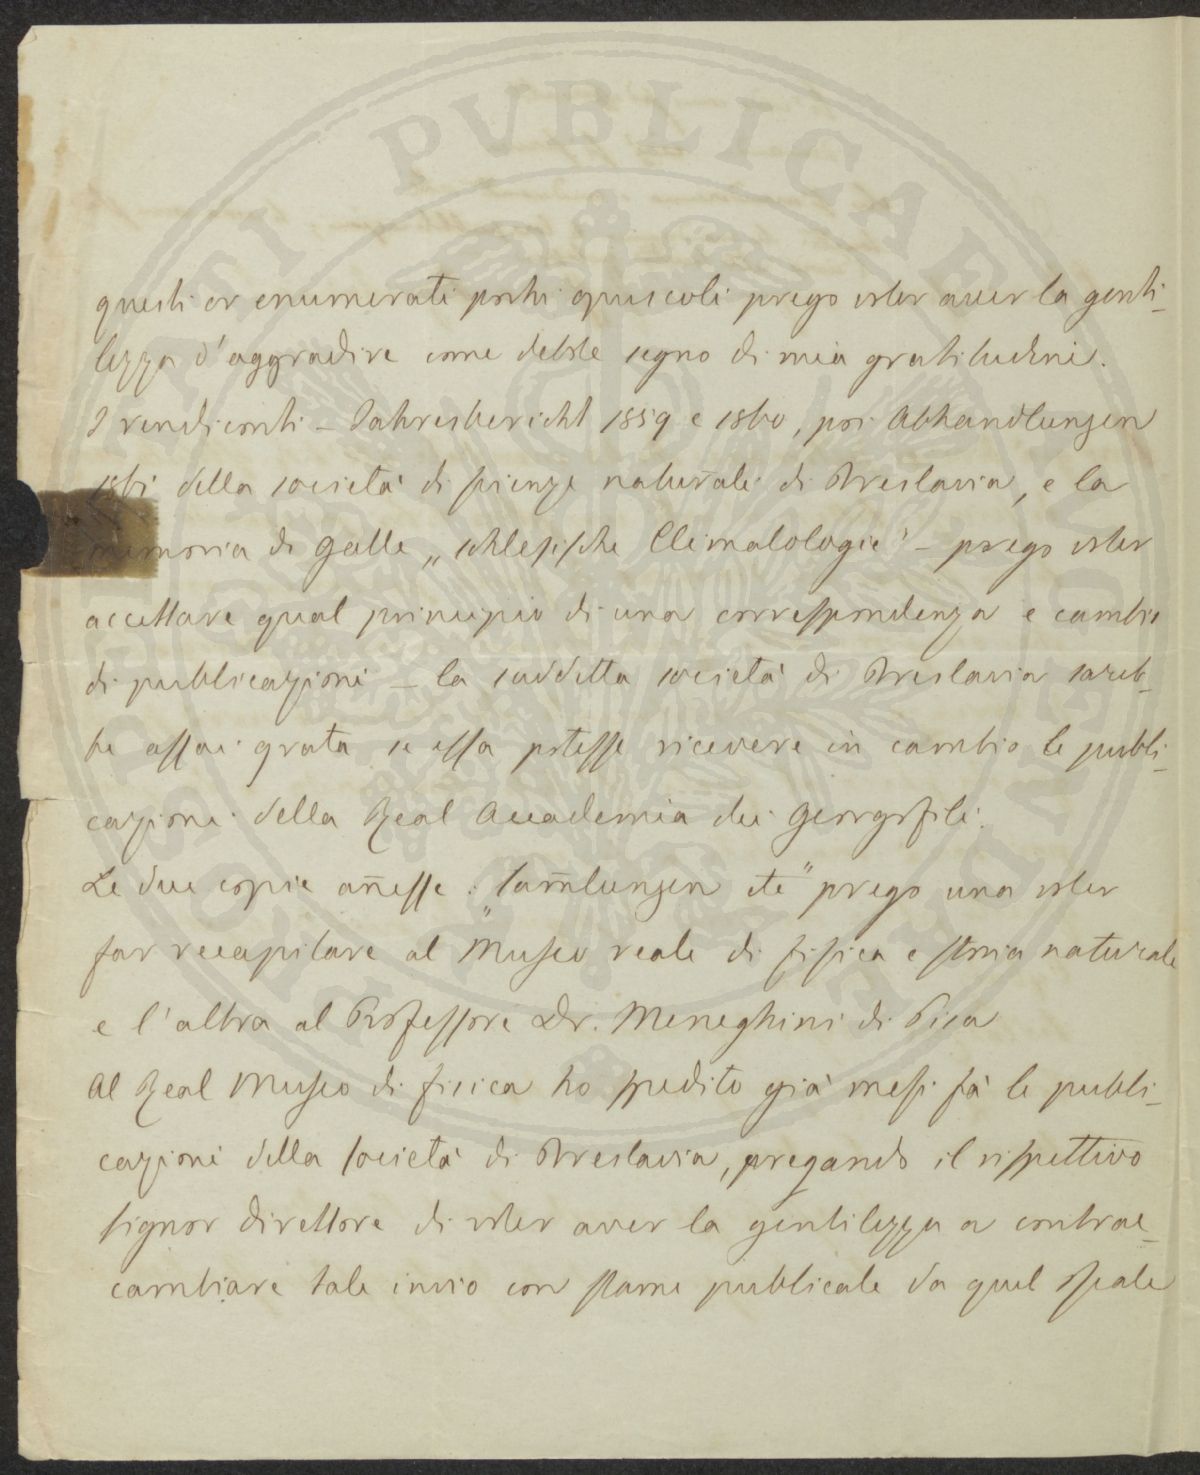 PVBLICAE
questi or enumerati pochi opuscoli prego voler aver la genti-
lezza d'aggradire come debole segno di mia gratitudine.
I rendiconti – Jahresbericht 1859 e 1860, poi Abhandlungen
1861 della società di scienze naturali di Breslavia, e la
memoria di Galle „schlesische Climatologie" – prego voler
accettare qual principio di una correspondenza e cambio
di publicazioni – la suddetta società di Breslavia sareb-
be assai grata se essa potesse ricevere in cambio le publi-
cazioni della Real Accademia dei Georgofili.
Le due copie añesse „Sam̄lungen etc" prego una voler
far recapitare al Museo reale di fisica e storia naturale
e l'altra al Professore Dr. Meneghini di Pisa
Al Real Museo di fisica ho spedito già mesi fà le publi-
cazioni della società di Breslavia, pregando il rispettivo
signor direttore di voler aver la gentilezza a contrac-
cambiare tale invio con stame publicate da quel